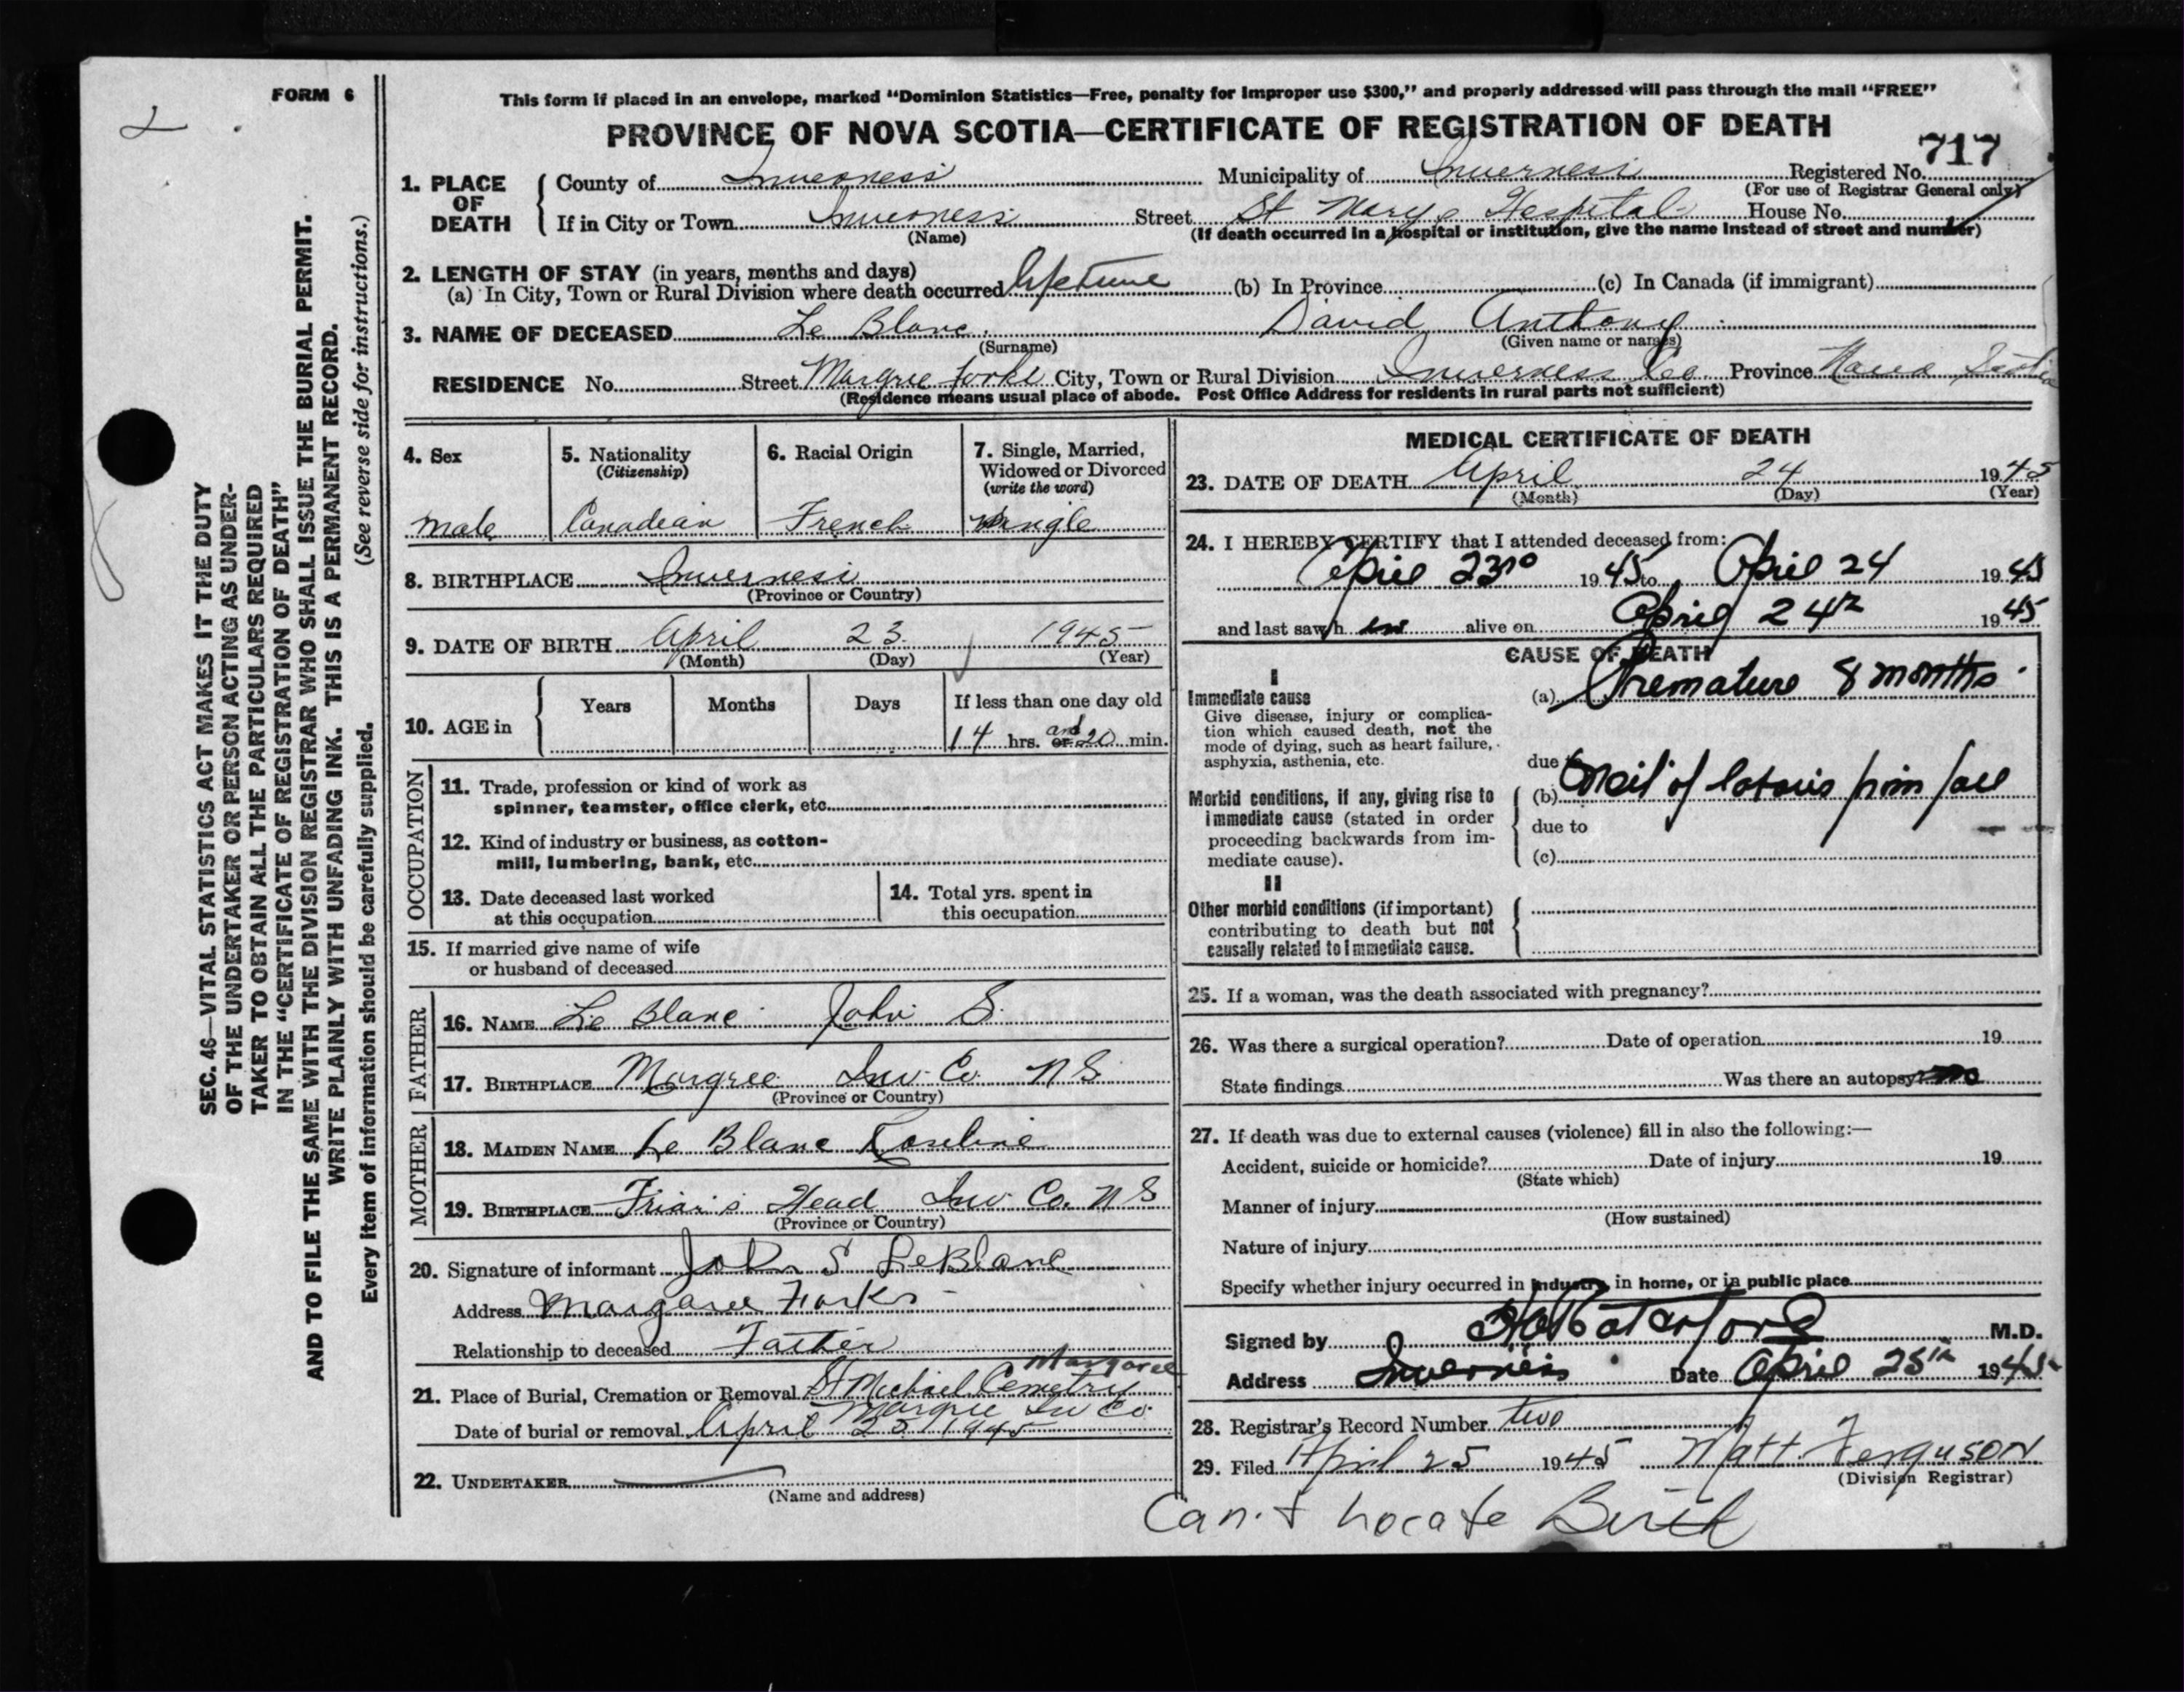 FORM 6
2
This form if placed in an envelope, marked “Dominion Statistics—Free, penalty for improper use $300,” and properly addressed will pass through the mail “FREE”
PROVINCE OF NOVA SCOTIA—CERTIFICATE OF REGISTRATION OF DEATH
717
1. PLACE OF DEATH
County of Inverness Municipality of Inverness Registered No.
(For use of Registrar General only)
If in City or Town Inverness Street St Marys Hospital House No.
(Name) (If death occurred in a hospital or institution, give the name instead of street and number)
2. LENGTH OF STAY (in years, months and days)
(a) In City, Town or Rural Division where death occurred lifetime (b) In Province (c) In Canada (if immigrant)
3. NAME OF DECEASED Le Blanc. David Anthony
(Surname) (Given name or names)
RESIDENCE No. Street Margree Forks City, Town or Rural Division Inverness Co. Province Nova Scotia
(Residence means usual place of abode. Post Office Address for residents in rural parts not sufficient)
4. Sex
male
5. Nationality
(Citizenship)
Canadian
6. Racial Origin
French
7. Single, Married,
Widowed or Divorced
(write the word)
single
8. BIRTHPLACE Inverness
(Province or Country)
9. DATE OF BIRTH April 23 1945
(Month) (Day) (Year)
10. AGE in
Years Months Days If less than one day old
14 hrs. or and 20 min.
OCCUPATION
11. Trade, profession or kind of work as
spinner, teamster, office clerk, etc.
12. Kind of industry or business, as cotton-
mill, lumbering, bank, etc.
13. Date deceased last worked
at this occupation
14. Total yrs. spent in
this occupation
15. If married give name of wife
or husband of deceased
FATHER
16. NAME Le Blanc John S.
17. BIRTHPLACE Margree Inv. Co. N S
(Province or Country)
MOTHER
18. MAIDEN NAME Le Blanc Roseline
19. BIRTHPLACE Friar's Head Inv. Co. N S
(Province or Country)
20. Signature of informant John S LeBlanc
Address Margaree Forks
Relationship to deceased Father
Margaree
21. Place of Burial, Cremation or Removal St Michael Cemetry
Margree Inv Co.
Date of burial or removal April 25 1945
22. UNDERTAKER
(Name and address)
MEDICAL CERTIFICATE OF DEATH
23. DATE OF DEATH April 24 1945
(Month) (Day) (Year)
24. I HEREBY CERTIFY that I attended deceased from:
April 23rd 1945 to April 24 1945
and last saw h im alive on April 24th 1945
CAUSE OF DEATH
I
Immediate cause
Give disease, injury or complica-
tion which caused death, not the
mode of dying, such as heart failure,
asphyxia, asthenia, etc.
(a) Premature 8 months.
due to
Morbid conditions, if any, giving rise to
immediate cause (stated in order
proceeding backwards from im-
mediate cause).
(b) of
due to
(c)
II
Other morbid conditions (if important)
contributing to death but not
causally related to immediate cause.
25. If a woman, was the death associated with pregnancy?
26. Was there a surgical operation? Date of operation 19
State findings Was there an autopsy? no
27. If death was due to external causes (violence) fill in also the following:—
Accident, suicide or homicide? Date of injury 19
(State which)
Manner of injury
(How sustained)
Nature of injury
Specify whether injury occurred in industry, in home, or in public place
Signed by M.D.
Address Inverness Date April 25th 1945
28. Registrar's Record Number two
29. Filed April 25 1945 Matt. Ferguson
(Division Registrar)
Can't Locate Birth
SEC. 46—VITAL STATISTICS ACT MAKES IT THE DUTY
OF THE UNDERTAKER OR PERSON ACTING AS UNDER-
TAKER TO OBTAIN ALL THE PARTICULARS REQUIRED
IN THE “CERTIFICATE OF REGISTRATION OF DEATH”
AND TO FILE THE SAME WITH THE DIVISION REGISTRAR WHO SHALL ISSUE THE BURIAL PERMIT.
WRITE PLAINLY WITH UNFADING INK. THIS IS A PERMANENT RECORD.
Every item of information should be carefully supplied. (See reverse side for instructions.)